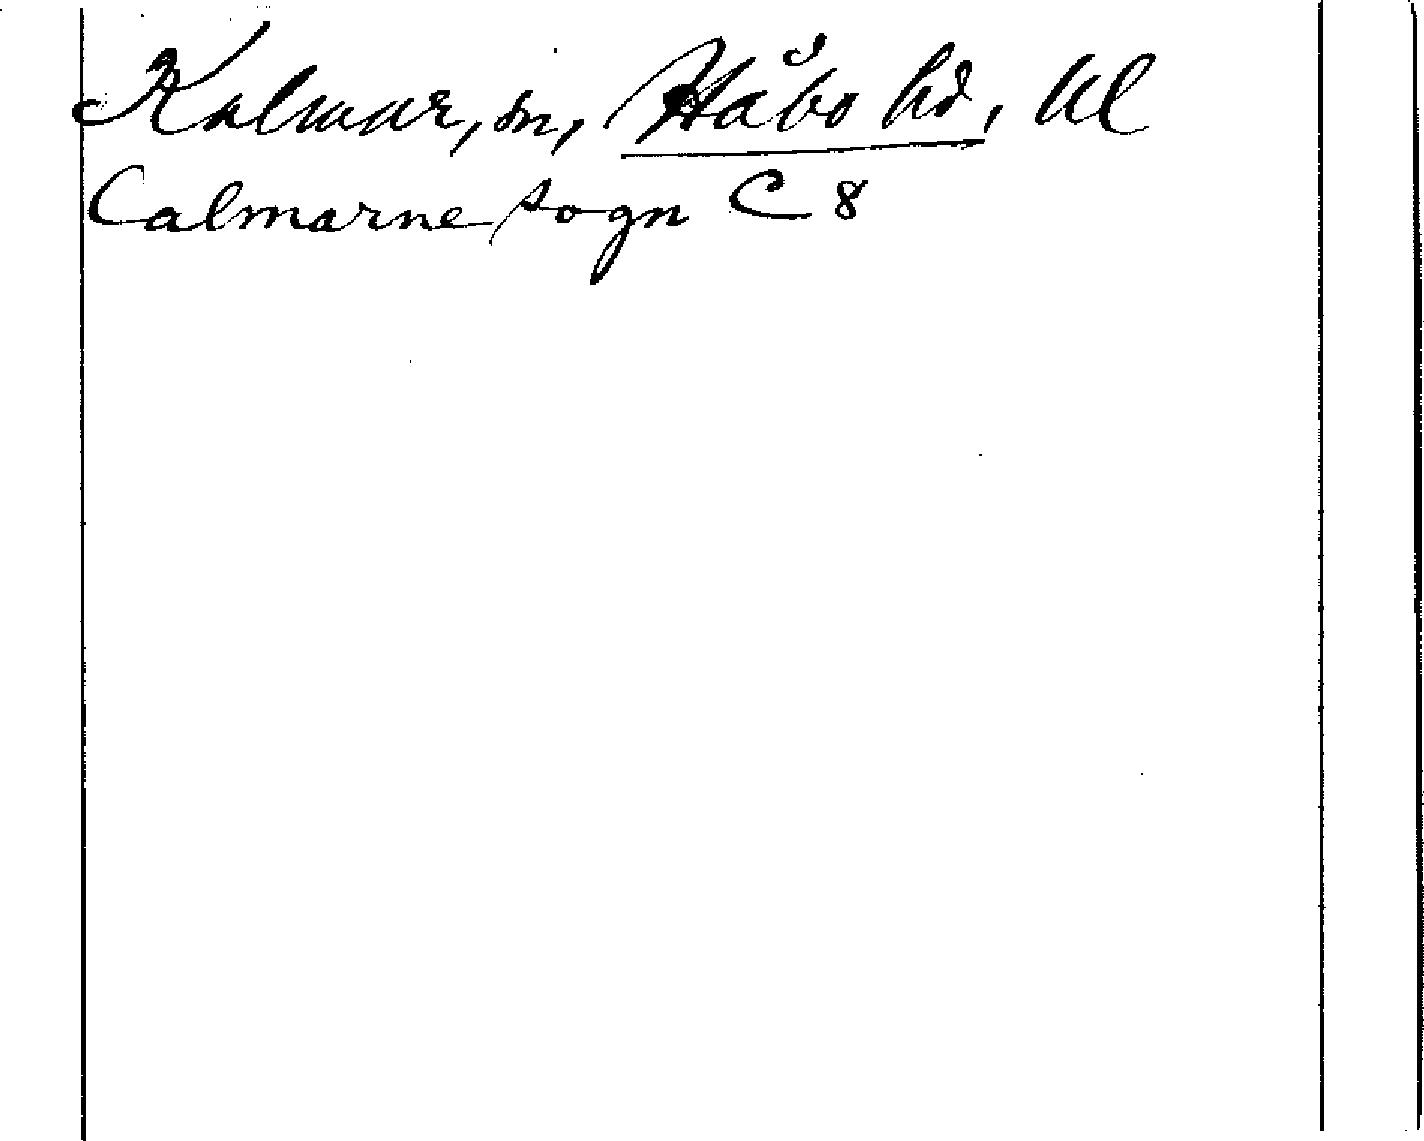 Kalmar, sn, Håbo hd, Ul
Calmarne sogn C 8